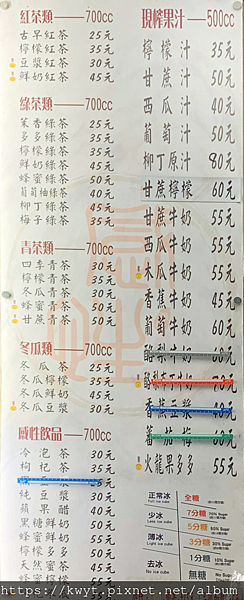 紅茶類——700cc
古早紅茶 25元
檸檬紅茶 35元
豆漿紅茶 30元
鮮奶紅茶 45元
綠茶類——700cc
茉香綠茶 25元
多多綠茶 35元
檸檬綠茶 35元
鮮奶綠茶 45元
蜂蜜綠茶 50元
葡萄柚綠茶 40元
柳丁綠茶 45元
梅子綠茶 35元
青茶類——700cc
四季青茶 30元
檸檬青茶 35元
冬瓜青茶 30元
蜂蜜青茶 50元
甘蔗青茶 50元
冬瓜類——700cc
冬瓜茶 25元
冬瓜檸檬 35元
冬瓜鮮奶 45元
冬瓜豆漿 30元
鹹性飲品——700cc
冷泡茶 30元
枸杞茶 35元
純豆漿 30元
蘋果醋 40元
黑糖鮮奶 50元
蜂蜜鮮奶 55元
檸檬多多 50元
天然蜜茶 45元
蜂蜜檸檬 55元
現榨果汁——500cc
檸檬汁 35元
甘蔗汁 50元
西瓜汁 40元
葡萄汁 50元
柳丁原汁 80元
甘蔗檸檬 60元
甘蔗牛奶 55元
西瓜牛奶 55元
木瓜牛奶 55元
香蕉牛奶 45元
葡萄牛奶 60元
酪梨牛奶
火龍果多多 55元
正常冰
少冰
薄冰
去冰
全糖
7分糖
5分糖
3分糖
1分糖
無糖
https://kwyt.pixnet.net/album